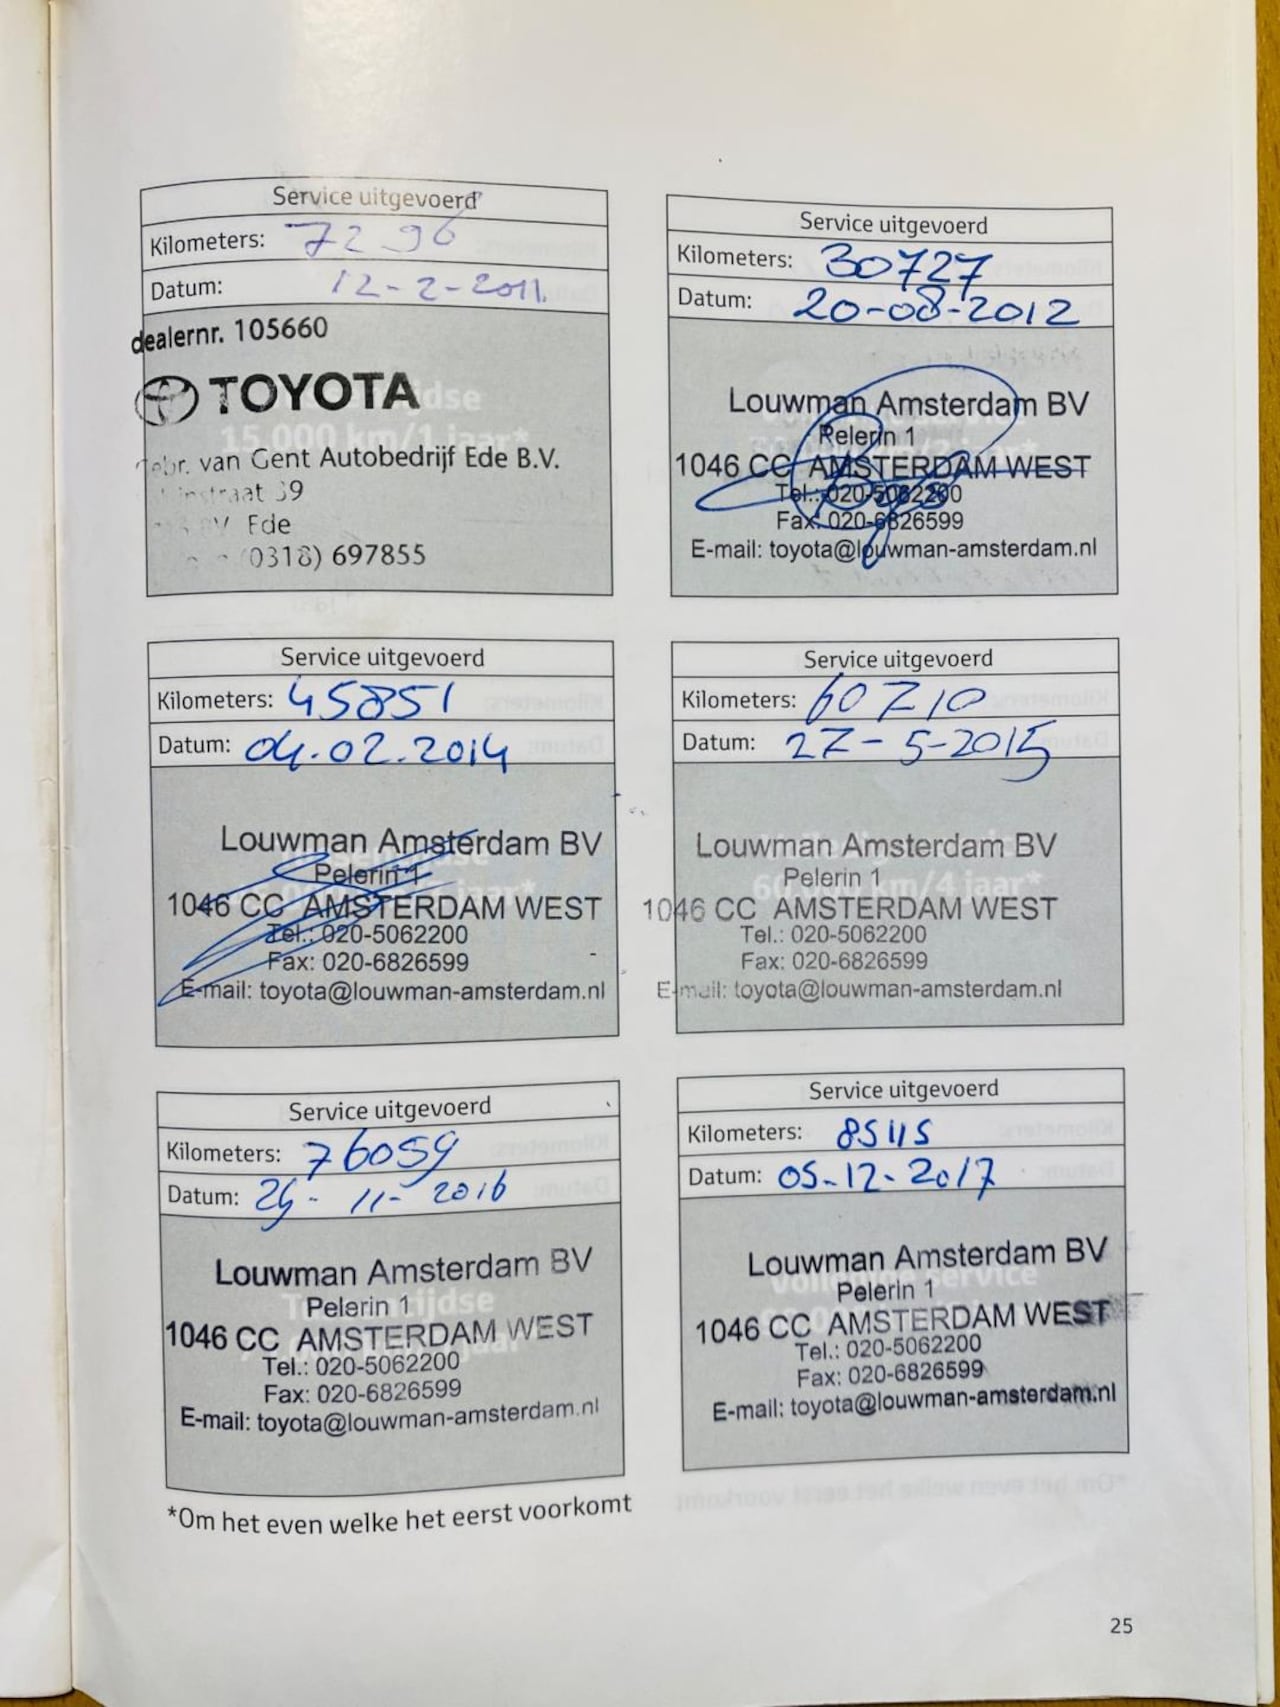 Service uitgevoerd
Kilometers: 7296
Datum: 12-2-2011
dealernr. 105660
TOYOTA
15.000 km/1 jaar*
Gebr. van Gent Autobedrijf Ede B.V.
straat 39
Ede
(0318) 697855
Service uitgevoerd
Kilometers: 30727
Datum: 20-08-2012
Louwman Amsterdam BV
Pelerin 1
1046 CC AMSTERDAM WEST
Tel.: 020-5062200
Fax: 020-6826599
E-mail: toyota@louwman-amsterdam.nl
Service uitgevoerd
Kilometers: 45851
Datum: 04.02.2014
Louwman Amsterdam BV
Pelerin 1
1046 CC AMSTERDAM WEST
Tel.: 020-5062200
Fax: 020-6826599
E-mail: toyota@louwman-amsterdam.nl
Service uitgevoerd
Kilometers: 60710
Datum: 27-5-2015
Louwman Amsterdam BV
Pelerin 1
60.000 km/4 jaar*
1046 CC AMSTERDAM WEST
Tel.: 020-5062200
Fax: 020-6826599
E-mail: toyota@louwman-amsterdam.nl
Service uitgevoerd
Kilometers: 76059
Datum: 29-11-2016
Louwman Amsterdam BV
Pelerin 1
Tussentijdse
1046 CC AMSTERDAM WEST
Tel.: 020-5062200
Fax: 020-6826599
E-mail: toyota@louwman-amsterdam.nl
Service uitgevoerd
Kilometers: 85115
Datum: 05-12-2017
Louwman Amsterdam BV
Volledige service
Pelerin 1
1046 CC AMSTERDAM WEST
Tel.: 020-5062200
Fax: 020-6826599
E-mail: toyota@louwman-amsterdam.nl
*Om het even welke het eerst voorkomt
25